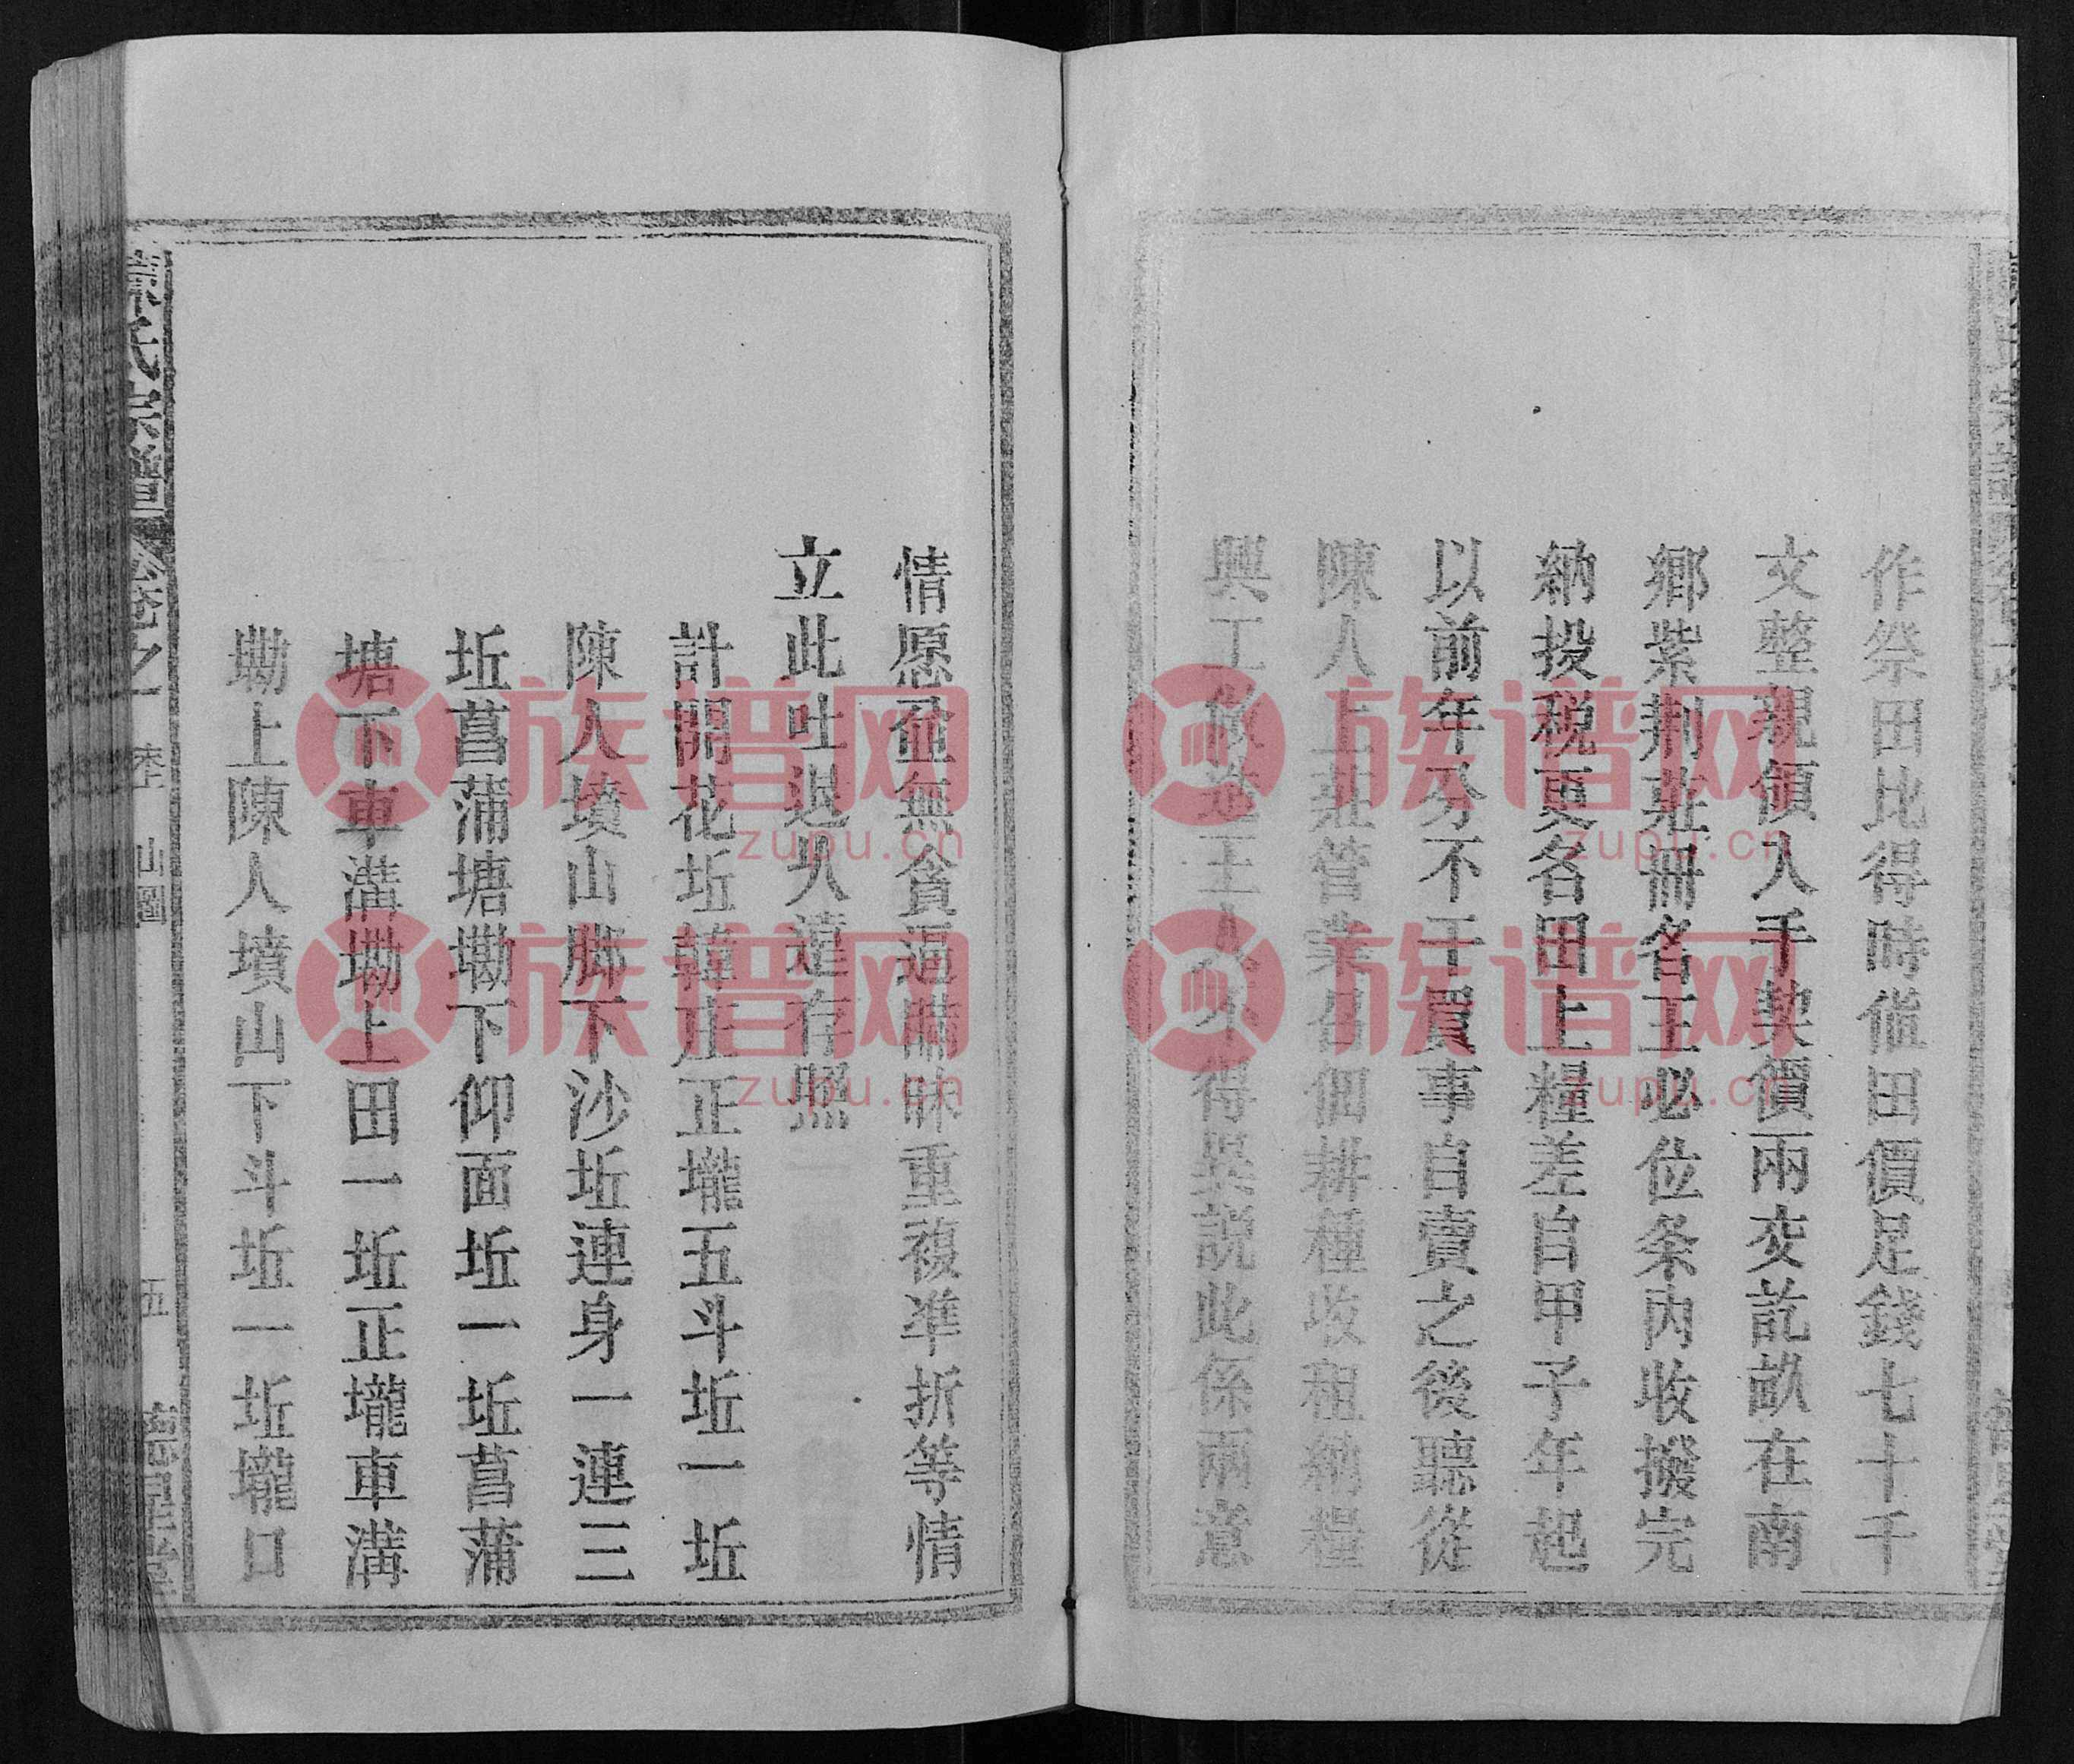 作祭田比得時值田價足錢七十千
文整親領入手契價兩交訖畝在南
鄉紫荆莊冊名王必位条内收撥完
納投税更名田上糧差自甲子年起
以前年分不干買事自賣之後聽從
陳人上莊管業召佃耕種收租納糧
興工修造王人不得異説此係兩意
情愿並無貪逼瞞昧重複準折等情
立此吐退乆遠存照
計開花坵韓庄正壠五斗坵一坵
陳人墳山脚下沙坵連身一連三
坵菖蒲塘塝下仰面坵一坵菖蒲
塘下車溝塝上田一坵正壠車溝
塝上陳人墳山下斗坵一坵壠口
卷之一
山圖
五
族谱网
zupu.cn
族谱网
zupu.cn
族谱网
zupu.cn
族谱网
zupu.cn